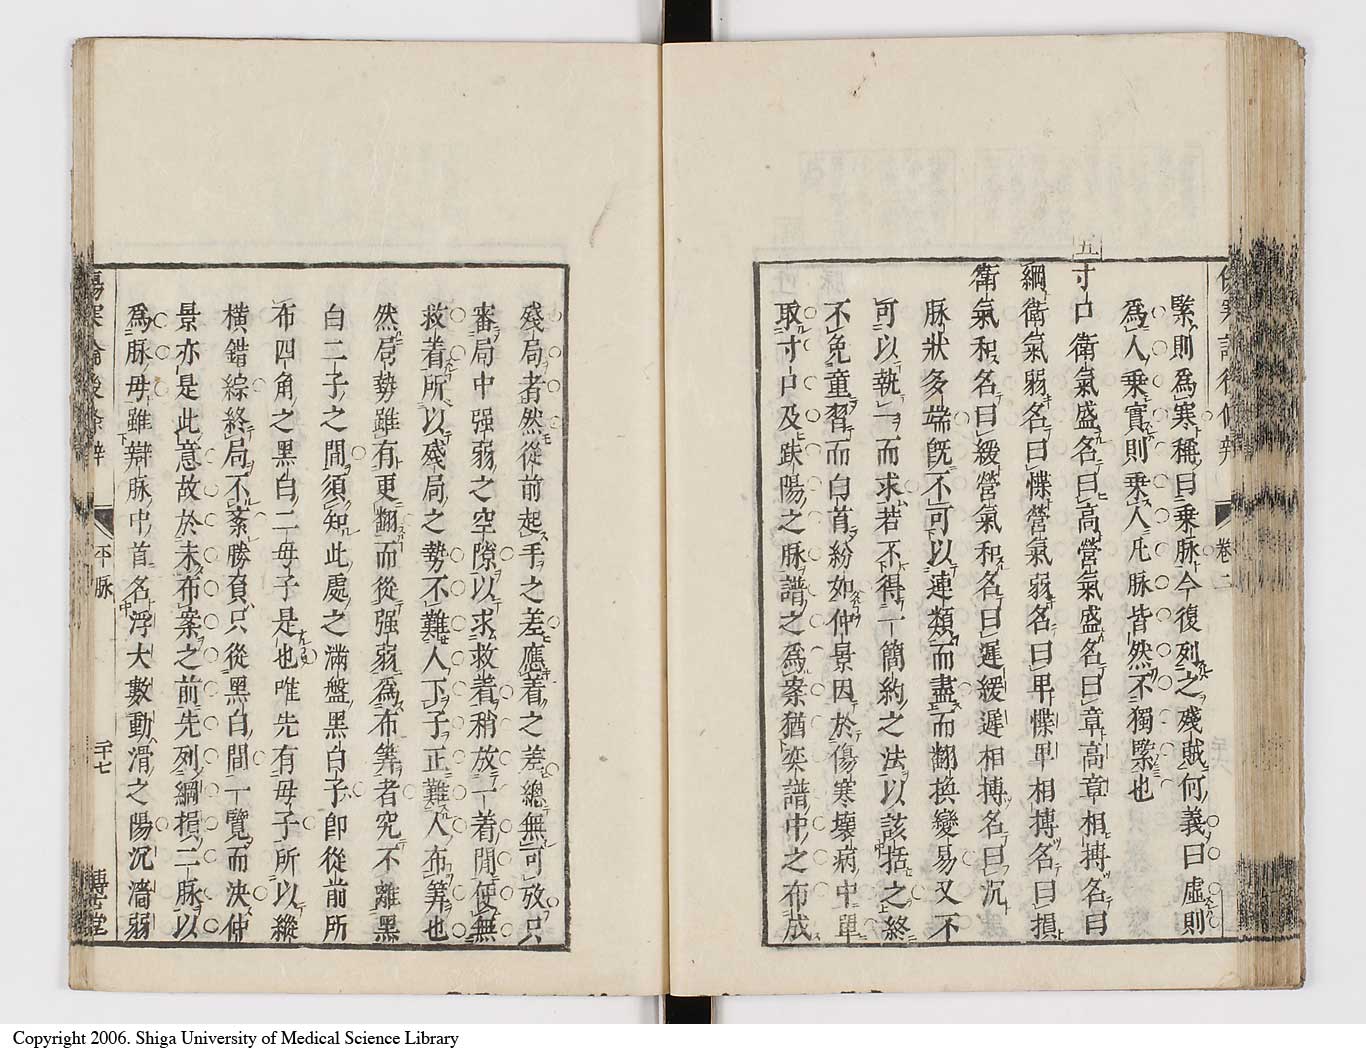 傷寒論後條辨
卷二
緊則爲寒稱曰乗脉今復列之殘賊何義曰虛則
爲人乗實則乗人凡脉皆然不獨緊也
五
寸口衛氣盛名曰高營氣盛名曰章高章相搏名曰
綱衛氣弱名曰惵營氣弱名曰卑惵卑相搏名曰損
衛氣和名曰緩營氣和名曰遲緩遲相搏名曰沉
脉狀多端既不可以連類而盡而翻換變易又不
可以執一而求若不得一簡約之法以該括之終
不免童習而白首紛如仲景因於傷寒壞病中單
取寸口及趺陽之脉譜之爲案猶奕譜中之布成
殘局者然從前起手之差應着之差總無可攷只
審局中强弱之空隙以求救着稍放一着閒便無
救着所以殘局之勢不難人下子正難人布筭也
然局勢雖有更翻而從强弱爲布筭者究不離黑
白二子之間須知此處之滿盤黑白子卽從前所
布四角之黑白二母子是也唯先有母子所以縱
横錯綜終局不紊勝負只從黑白間一覽而決仲
景亦是此意故於未布案之前先列綱損二脉以
爲脉母雖辯脉中首名浮大數動滑之陽沉濇弱
傷寒論後條辨
平脉
二十七
博古堂
Copyright 2006. Shiga University of Medical Science Library